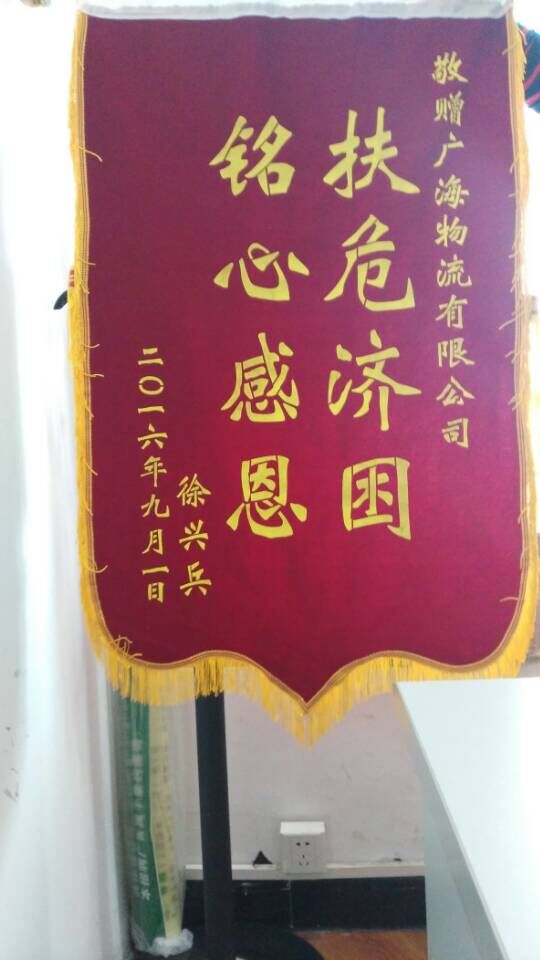 敬赠广海物流有限公司
扶危济困
铭心感恩
徐兴兵
二〇一六年九月一日